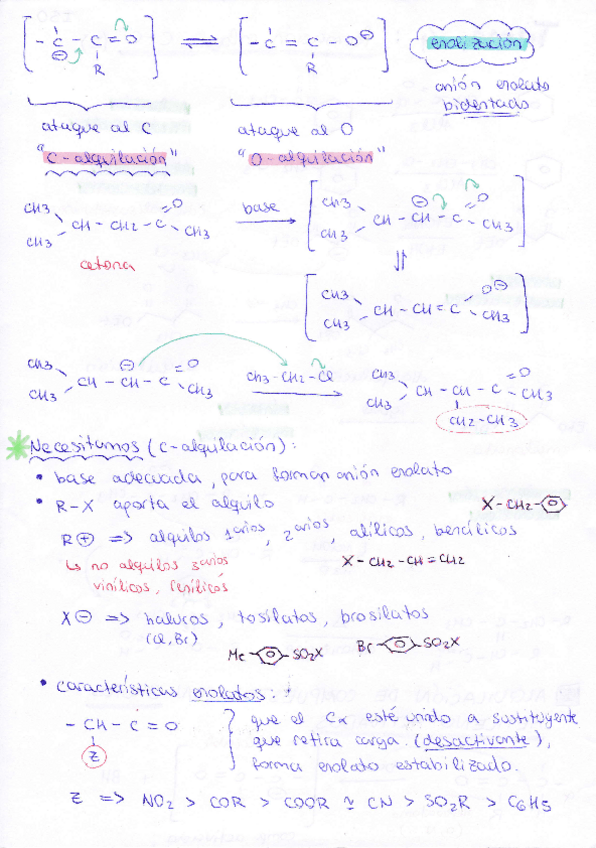 [ - C - C = O ] ⇌ [ - C = C - O⊖ ] enolización
⊖ R R
anión enolato
bidentado
ataque al C ataque al O
"C-alquilación" "O-alquilación"
CH3 CH3 CH - CH2 - C =O CH3 base [ CH3 CH3 CH - CH⊖ - C =O CH3 ]
cetona
[ CH3 CH3 CH - CH = C O⊖ CH3 ]
CH3 CH3 CH - CH⊖ - C =O CH3 CH3-CH2-Cl CH3 CH3 CH - CH - C =O CH3
CH2-CH3
Necesitamos (C-alquilación):
• base adecuada, para forman anión enolato
• R-X aporta el alquilo X-CH2-
R⊕ => alquilos 1arios, 2arios, alílicos, bencílicos
↳ no alquilos 3arios X-CH2-CH=CH2
vinílicos, fenílicos
X⊖ => haluros, tosilatos, brosilatos
(Cl, Br) Me- -SO2X Br- -SO2X
• características enolatos:
- CH - C = O que el Cα esté unido a sustituyente
Z que retira carga (desactivante),
forma enolato estabilizado.
Z => NO2 > COR > COOR ≅ CN > SO2R > C6H5